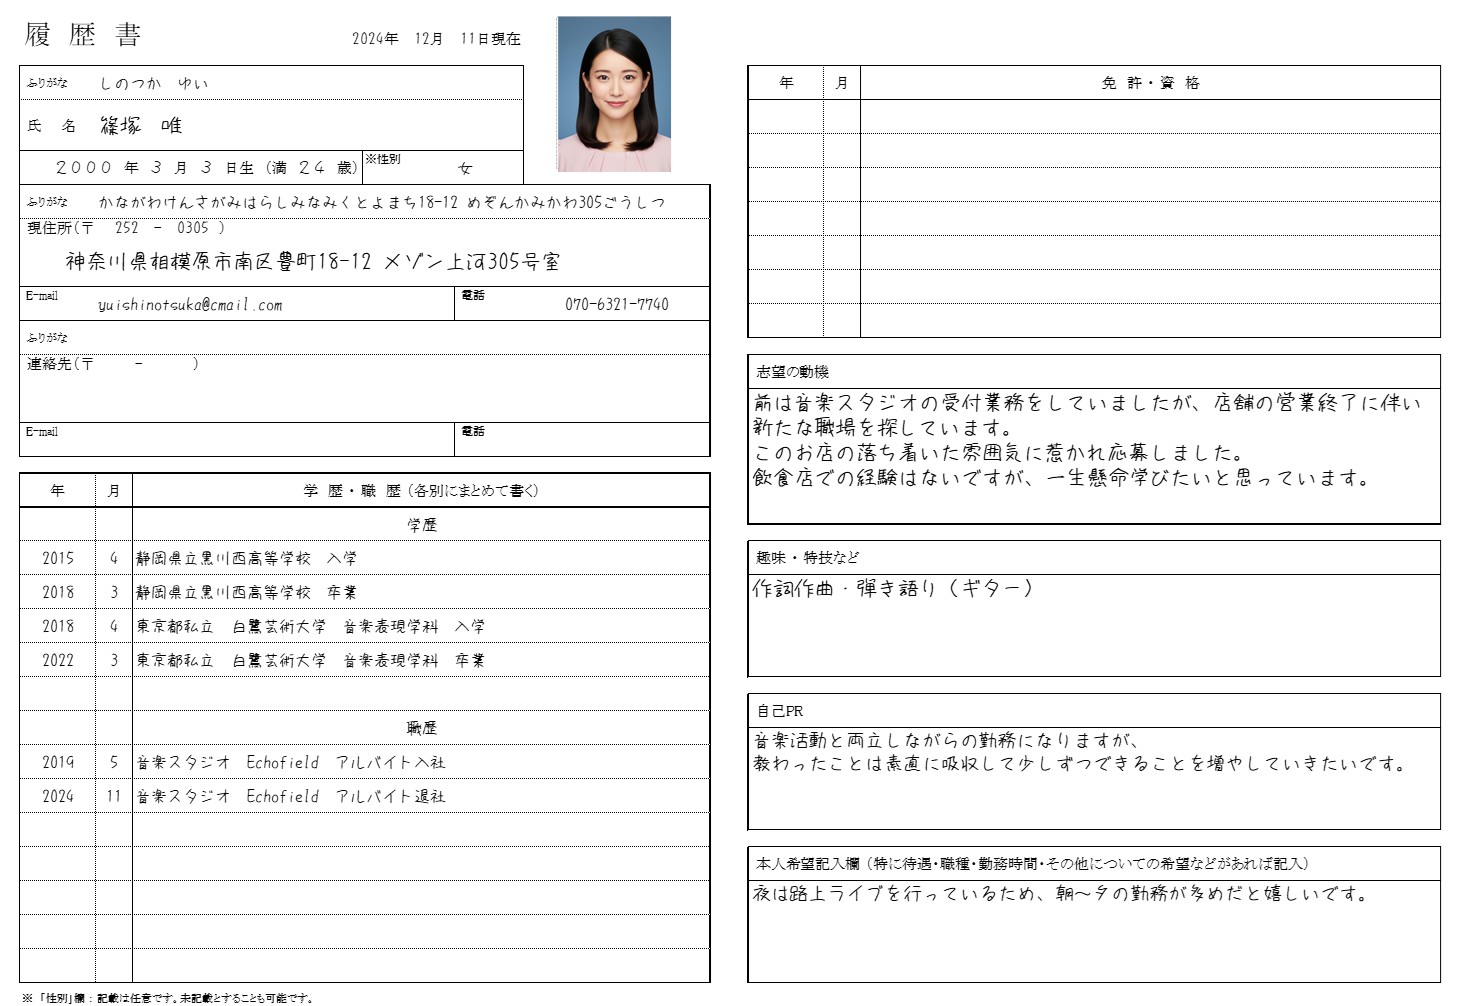 履歴書
2024年 12月 11日現在
ふりがな しのつか ゆい
氏 名 篠塚 唯
2000 年 3 月 3 日生 (満 24 歳)
※性別 女
ふりがな かながわけんさがみはらしみなみくとよまち18-12 めぞんかみかわ305ごうしつ
現住所(〒 252 - 0305 )
神奈川県相模原市南区豊町18-12 メゾン上河305号室
E-mail yuishinotsuka@cmail.com
電話 070-6321-7740
ふりがな
連絡先(〒 - )
E-mail
電話
年 月 学 歴・職 歴 (各別にまとめて書く)
学歴
2015 4 静岡県立黒川西高等学校 入学
2018 3 静岡県立黒川西高等学校 卒業
2018 4 東京都私立 白鷺芸術大学 音楽表現学科 入学
2022 3 東京都私立 白鷺芸術大学 音楽表現学科 卒業
職歴
2019 5 音楽スタジオ Echofield アルバイト入社
2024 11 音楽スタジオ Echofield アルバイト退社
※ 「性別」欄：記載は任意です。未記載とすることも可能です。
年 月 免 許・資 格
志望の動機
前は音楽スタジオの受付業務をしていましたが、店舗の営業終了に伴い
新たな職場を探しています。
このお店の落ち着いた雰囲気に惹かれ応募しました。
飲食店での経験はないですが、一生懸命学びたいと思っています。
趣味・特技など
作詞作曲・弾き語り（ギター）
自己PR
音楽活動と両立しながらの勤務になりますが、
教わったことは素直に吸収して少しずつできることを増やしていきたいです。
本人希望記入欄（特に待遇・職種・勤務時間・その他についての希望などがあれば記入）
夜は路上ライブを行っているため、朝～夕の勤務が多めだと嬉しいです。